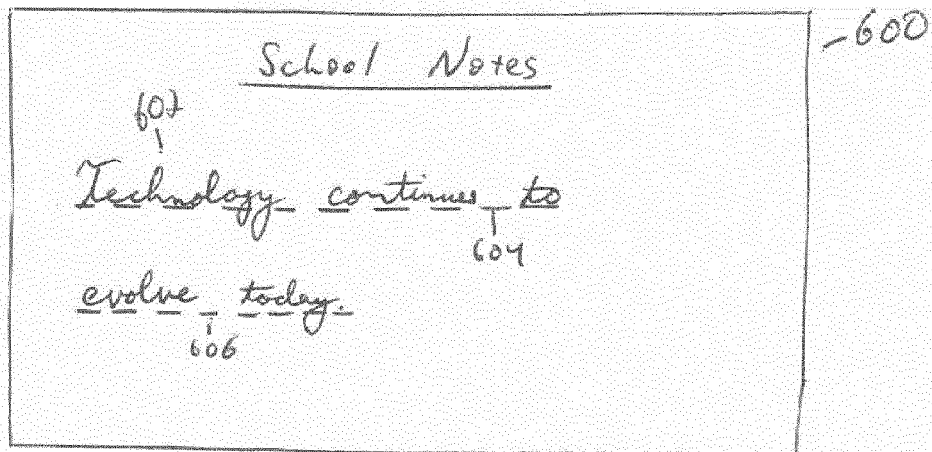 School Notes
600
602
Technology continues to
604
evolve today.
606